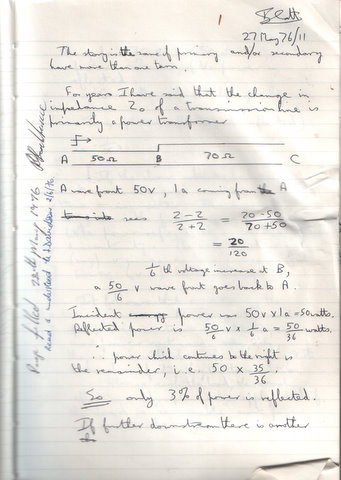 1
27 May 76/11
The story is the same if primary and/or secondary
have more than one turn.
For years I have said that the change in
impedance Z₀ of a transmission line is
primarily a power transformer
A 50Ω B 70Ω C
A wave front 50v, 1a coming from A
sees Z-Z / Z+Z = 70-50 / 70+50
= 20/120
1/6 th voltage increase at B,
a 50/6 v wave front goes back to A.
Incident power was 50v x 1a = 50 watts.
Reflected power is 50/6 v x 1/6 a = 50/36 watts.
∴ power which continues to the right is
the remainder, i.e. 50 x 35/36.
So only 3% of power is reflected.
If further downstream there is another
Page filled 28th May 1976
Read & understood